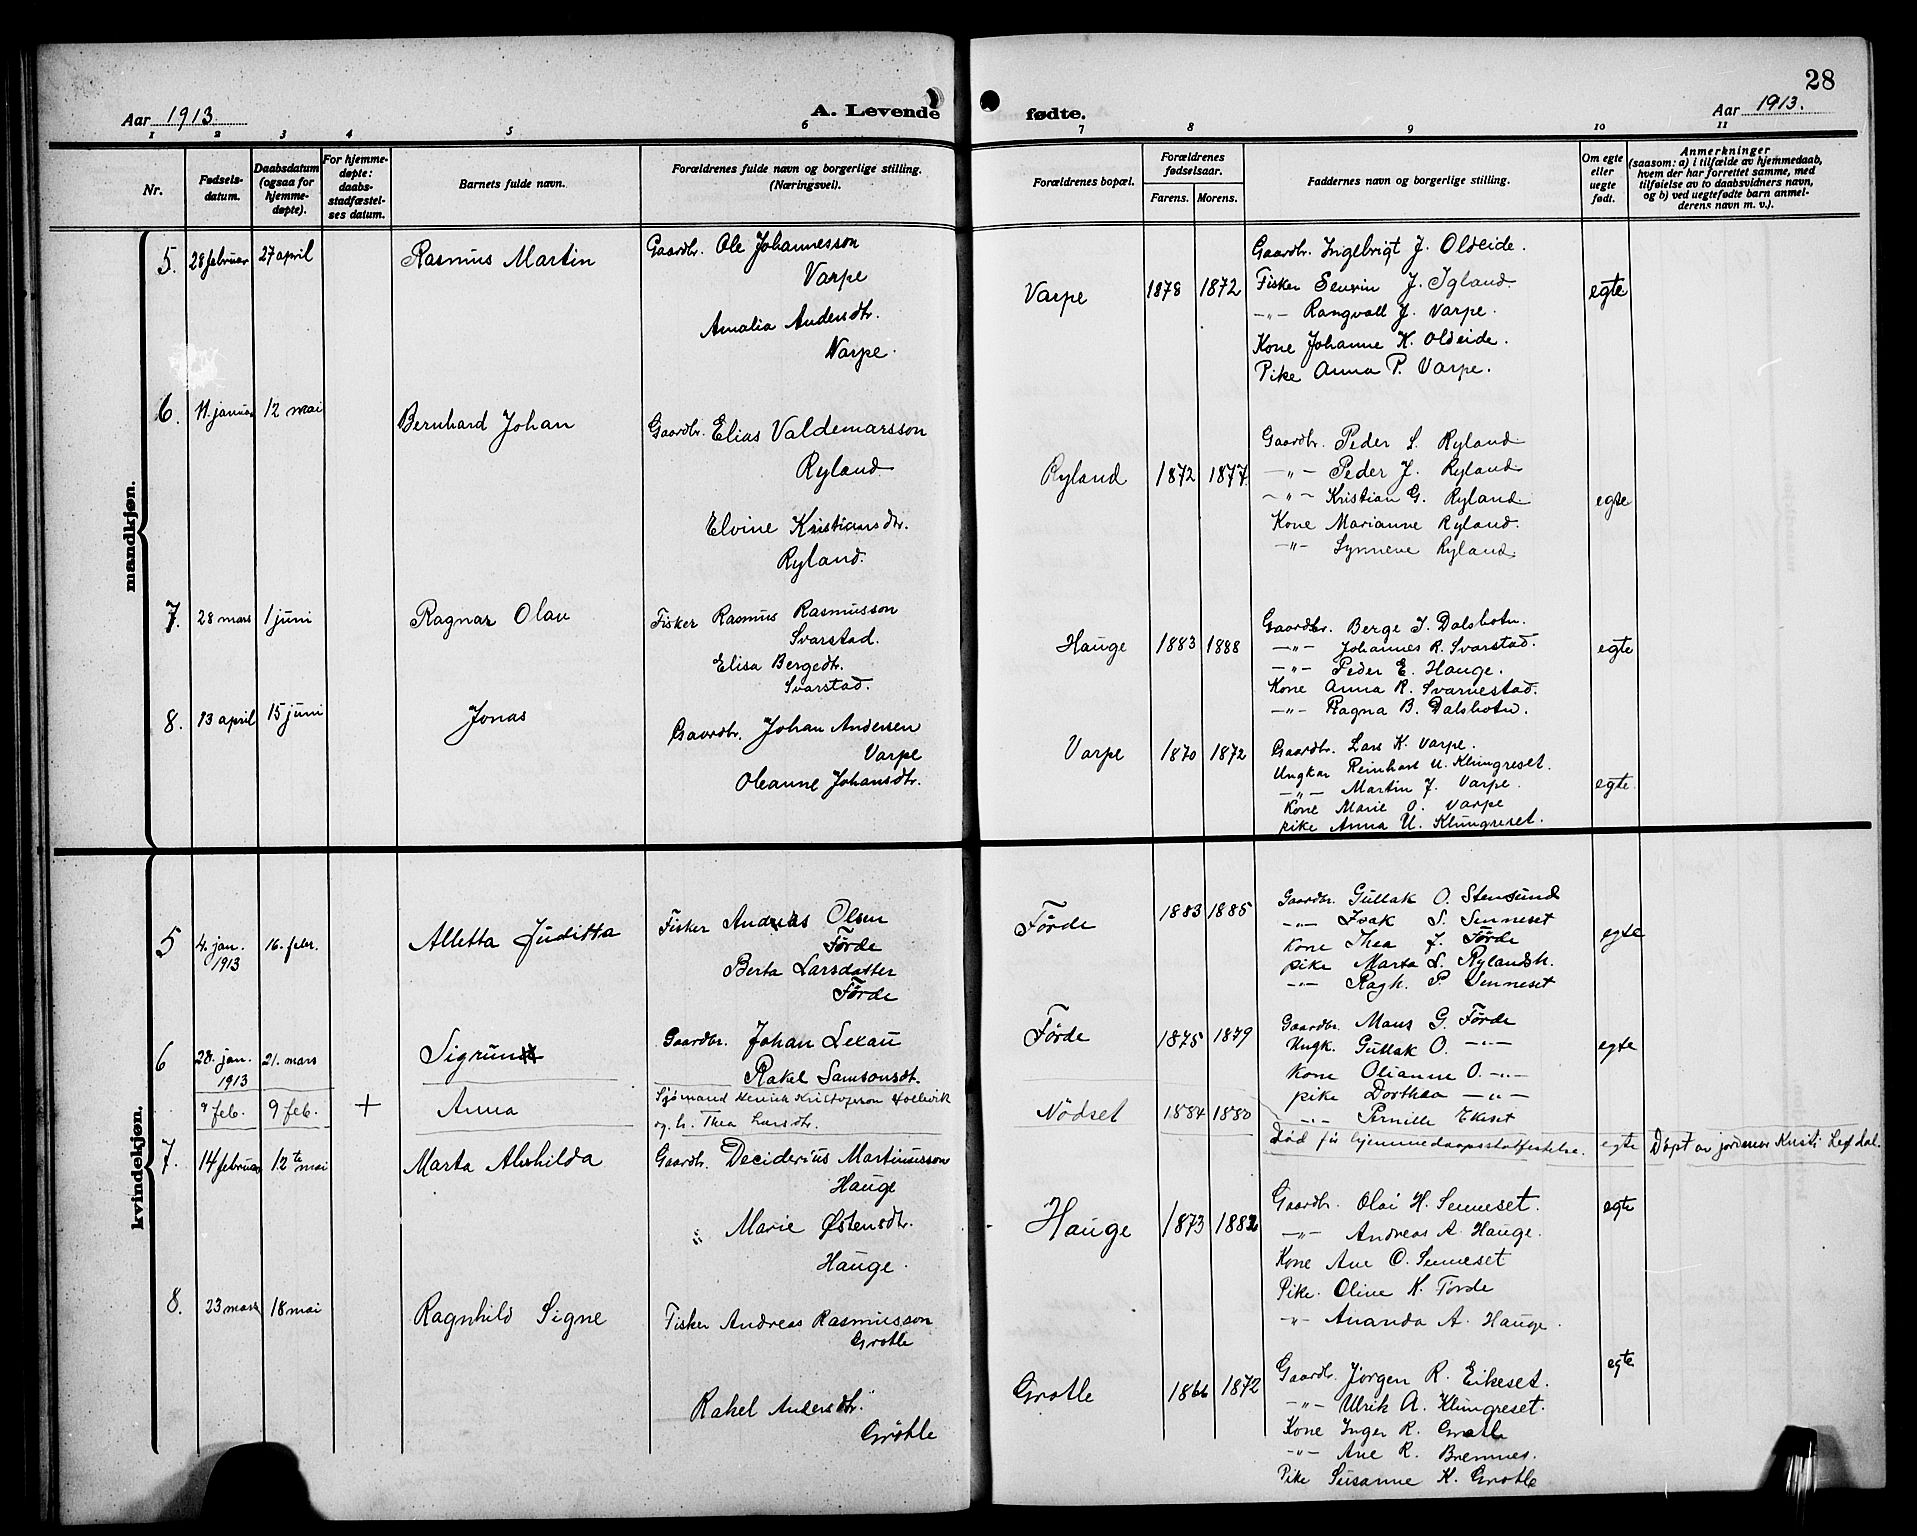 28
Aar 1913. A. Levende fødte. Aar 1913.
1 2 3 4 5 6 7 8 9 10 11
Nr.
Fødsels-
datum.
Daabsdatum
(ogsaa for
hjemme-
døpte).
For hjemme-
døpte:
daabs-
stadfæstel-
ses datum.
Barnets fulde navn.
Forældrenes fulde navn og borgerlige stilling.
(Næringsvei).
Forældrenes bopæl.
Forældrenes
fødselsaar.
Farens. Morens.
Faddernes navn og borgerlige stilling.
Om egte
eller
uegte
født.
Anmerkninger
(saasom: a) i tilfælde av hjemmedaab,
hvem der har forrettet samme, med
tilføielse av to daabsvidners navn,
og b) ved uegtefødte barn anmel-
derens navn m. v.).
mandkjøn.
5. 28 februar 27 april Rasmus Martin
Gaardbr. Ole Johannesson
Varpe
Amalia Andersdtr.
Varpe.
Varpe 1878 1872
Gaardbr. Ingebrigt J. Oldeide.
Fisker Sevrin J. Igland.
-"- Rangvall J. Varpe.
Kone Johanne K. Oldeide.
Pike Anna P. Varpe.
egte
6. 11. januar 12 mai Bernhard Johan
Gaardbr. Elias Valdemarsson
Ryland
Elvine Kristiansdtr.
Ryland.
Ryland 1872 1877
Gaardbr. Peder S. Ryland
-"- Peder J. Ryland
-"- Kristian G. Ryland
Kone Marianne Ryland.
-"- Synneve Ryland
egte
7. 28 mars 1 juni Ragnar Olav
Fisker Rasmus Rasmusson
Svarstad.
Elisa Bergedtr.
Svarstad.
Hauge 1883 1888
Gaardbr. Berge I. Dalsbotn.
-"- Johannes R. Svarstad.
-"- Peder E. Hauge.
Kone Anna R. Svarvestad.
-"- Ragna B. Dalsbotn.
egte
8. 13 april 15 juni Jonas
Gaardbr. Johan Andersen
Varpe
Oleanne Johansdtr.
Varpe 1870 1872
Gaardbr. Lars K. Varpe.
Ungkar Reinhart U. Klungreset.
-"- Martin J. Varpe.
Kone Marie O. Varpe
pike Anna U. Klungreset.
egte
kvindekjøn.
5 4. jan. 1913 16. febr. Alletta Juditta
Fisker Andreas Olsen
Førde
Berta Larsdatter
Førde
Førde 1883 1885
Gaardbr. Gullak O. Stensund
-"- Isak S. Senneset
Kone Thea J. Førde
pike Marta L. Rylandsh.
-"- Ragh. P. Senneset
egte
6 28. jan. 1913 21. mars Sigrun
Gaardbr. Johan Lexau
Rakel Samsonsdt.
Førde 1875 1879
Gaardbr. Mons G. Førde
Ungk. Gullak O. -"-
Kone Olianne O. -"-
pike Dorthea -"-
-"- Pernille Ekset
egte
9 feb. 9 feb. + Anna
Sjømand Henrik Kristoferson
og h. Thea Larsdtr.
Nödset 1884 1880
Död før hjemmedaapsstatfestelse. egte Døpt av jordmor Kristi Lefdal.
7. 14 februar 12te mai Marta Alvhilda
Gaardbr. Deciderius Martinusson
Hauge
" Marie Østensdtr.
Hauge.
Hauge 1873 1882
Gaardbr. Olai H. Senneset.
-"- Andreas A. Hauge.
Kone Ane O. Senneset
Pike. Oline K. Förde
-"- Ananda A. Hauge.
egte
8. 23 mars 18 mai Ragnhild Signe
Fisker Andreas Rasmusson
Grotle
Rakel Andersdtr.
Grotle
Grotle 1866 1872
Gaardbr. Jørgen R. Eikeset.
-"- Ulrik A. Klungreset.
Kone Inger R. Grotle
-"- Ane R. Bremnes.
Pike Susanne K. Grotle
egte